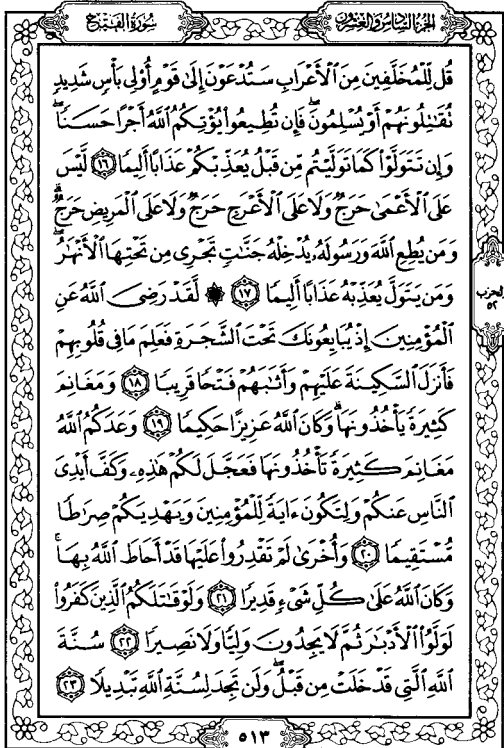 سُورَةُ الفَتْحِ الجُزْءُ السَّادِسُ وَالعِشْرُونَ
قُل لِّلْمُخَلَّفِينَ مِنَ ٱلْأَعْرَابِ سَتُدْعَوْنَ إِلَىٰ قَوْمٍ أُو۟لِى بَأْسٍ شَدِيدٍ
تُقَـٰتِلُونَهُمْ أَوْ يُسْلِمُونَ ۖ فَإِن تُطِيعُوا۟ يُؤْتِكُمُ ٱللَّهُ أَجْرًا حَسَنًا ۖ
وَإِن تَتَوَلَّوْا۟ كَمَا تَوَلَّيْتُم مِّن قَبْلُ يُعَذِّبْكُمْ عَذَابًا أَلِيمًا ١٦ لَّيْسَ
عَلَى ٱلْأَعْمَىٰ حَرَجٌ وَلَا عَلَى ٱلْأَعْرَجِ حَرَجٌ وَلَا عَلَى ٱلْمَرِيضِ حَرَجٌ ۗ
وَمَن يُطِعِ ٱللَّهَ وَرَسُولَهُۥ يُدْخِلْهُ جَنَّـٰتٍ تَجْرِى مِن تَحْتِهَا ٱلْأَنْهَـٰرُ ۖ
وَمَن يَتَوَلَّ يُعَذِّبْهُ عَذَابًا أَلِيمًا ١٧ ۞ لَّقَدْ رَضِىَ ٱللَّهُ عَنِ
ٱلْمُؤْمِنِينَ إِذْ يُبَايِعُونَكَ تَحْتَ ٱلشَّجَرَةِ فَعَلِمَ مَا فِى قُلُوبِهِمْ
فَأَنزَلَ ٱلسَّكِينَةَ عَلَيْهِمْ وَأَثَـٰبَهُمْ فَتْحًا قَرِيبًا ١٨ وَمَغَانِمَ
كَثِيرَةً يَأْخُذُونَهَا ۗ وَكَانَ ٱللَّهُ عَزِيزًا حَكِيمًا ١٩ وَعَدَكُمُ ٱللَّهُ
مَغَانِمَ كَثِيرَةً تَأْخُذُونَهَا فَعَجَّلَ لَكُمْ هَـٰذِهِۦ وَكَفَّ أَيْدِىَ
ٱلنَّاسِ عَنكُمْ وَلِتَكُونَ ءَايَةً لِّلْمُؤْمِنِينَ وَيَهْدِيَكُمْ صِرَٰطًا
مُّسْتَقِيمًا ٢٠ وَأُخْرَىٰ لَمْ تَقْدِرُوا۟ عَلَيْهَا قَدْ أَحَاطَ ٱللَّهُ بِهَا ۚ
وَكَانَ ٱللَّهُ عَلَىٰ كُلِّ شَىْءٍ قَدِيرًا ٢١ وَلَوْ قَـٰتَلَكُمُ ٱلَّذِينَ كَفَرُوا۟
لَوَلَّوُا۟ ٱلْأَدْبَـٰرَ ثُمَّ لَا يَجِدُونَ وَلِيًّا وَلَا نَصِيرًا ٢٢ سُنَّةَ
ٱللَّهِ ٱلَّتِى قَدْ خَلَتْ مِن قَبْلُ ۖ وَلَن تَجِدَ لِسُنَّةِ ٱللَّهِ تَبْدِيلًا ٢٣
الحزب
٥٢
٥١٣